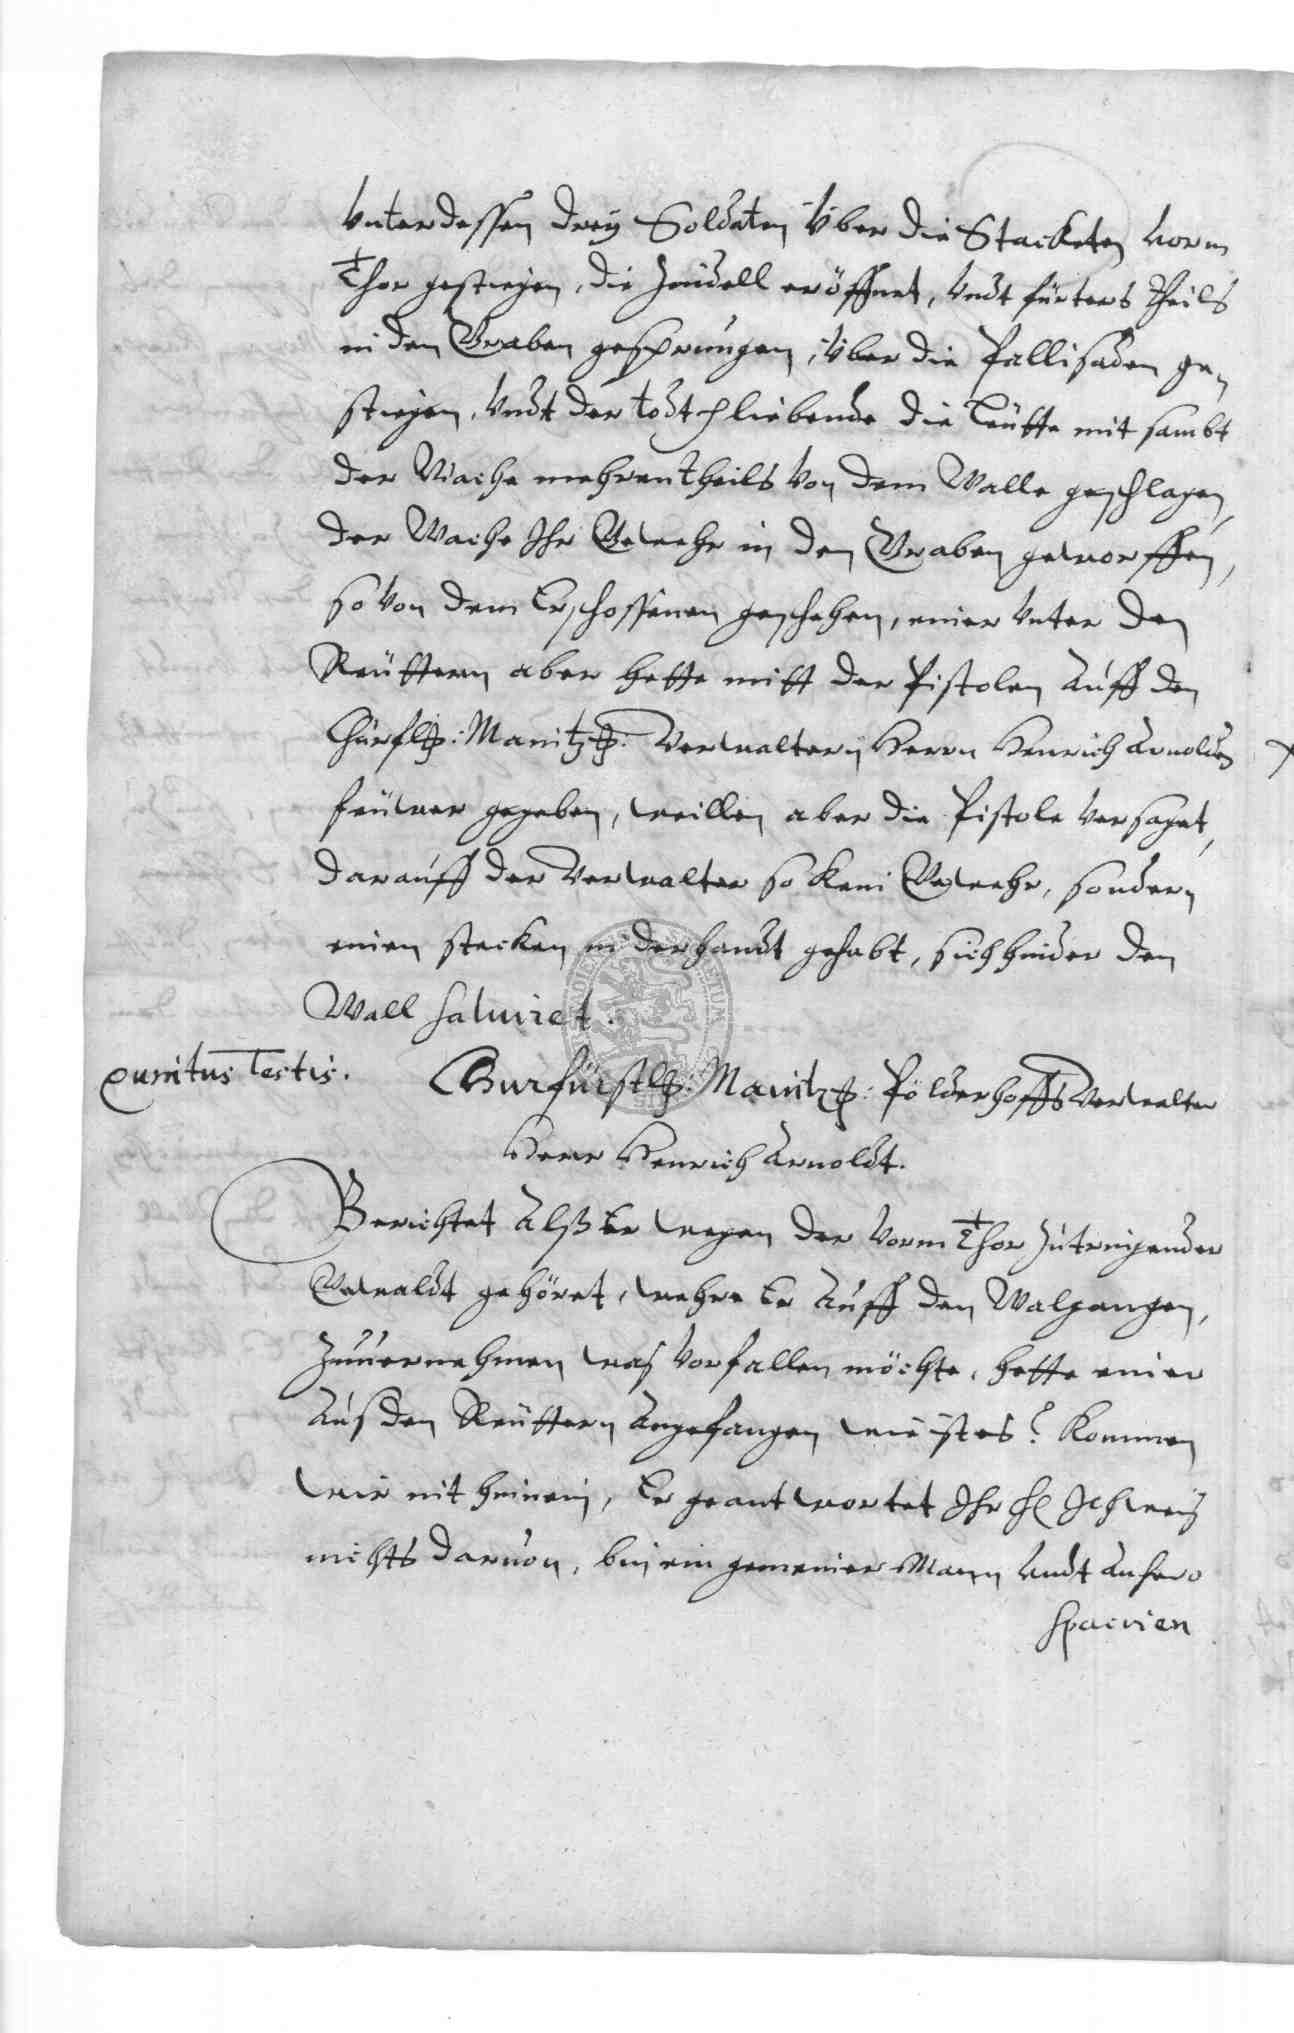 Unterdessen drey Soldaten Über die Stacketen vorm
Thor gestiegen, die eröffnet, Undt fürters theils
in den Graben gesprungen, Über die Pallisaden ge-
stiegen, Undt der todt die Leütte mit sambt
der Wache mehrentheils Von dem Walle geschlagen,
der Wache Ihr Gewehr in den Graben geworffen,
so Von dem Erschossenen geschehen, einer Unter den
Reüttern aber hette mitt der Pistolen Auff den
Churfl: Maintz: Verwaltern Herrn Henrich Arnolden
feüwer gegeben, weillen aber die Pistole Versaget,
darauff der Verwalter so kein Gewehr, sondern
einen stecken in der handt gehabt, sich hinder den
Wall salviret.
punitus Testis. Churfürstl: Maintz: Pölderhoffs Verwalter
Herr Henrich Arnoldt.
Berichtet Alß Er wegen der Vorm Thor zutringender
Gewaldt gehöret, wehre Er Auff den Walgangen,
Zuuernehmen was Vorfallen möchte, hette einer
Aus den Reüttern Angefangen wie ist es? Kommen
wir nit hinnein, Er geantwortet Ihr Ich weis
nichts daruon, bin ein gemeiner Mann Undt Anhero
spaciren